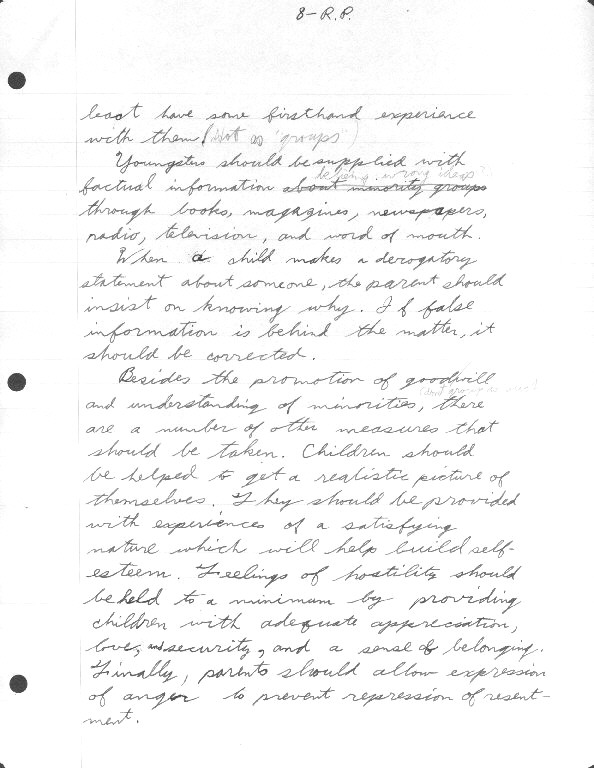 8 - R.P.
least have some firsthand experience
with them (Not as 'groups')
Youngsters should be supplied with
helping wrong ideas?
factual information about minority groups
through books, magazines, newspapers,
radio, television, and word of mouth.
When a child makes a derogatory
statement about someone, the parent should
insist on knowing why. If false
information is behind the matter, it
should be corrected.
Besides the promotion of goodwill
and understanding of minorities, there
are a number of other measures that
should be taken. Children should
be helped to get a realistic picture of
themselves. They should be provided
with experiences of a satisfying
nature which will help build self-
esteem. Feelings of hostility should
be held to a minimum by providing
children with adequate appreciation,
love, and security, and a sense of belonging.
Finally, parents should allow expression
of anger to prevent repression of resent-
ment.